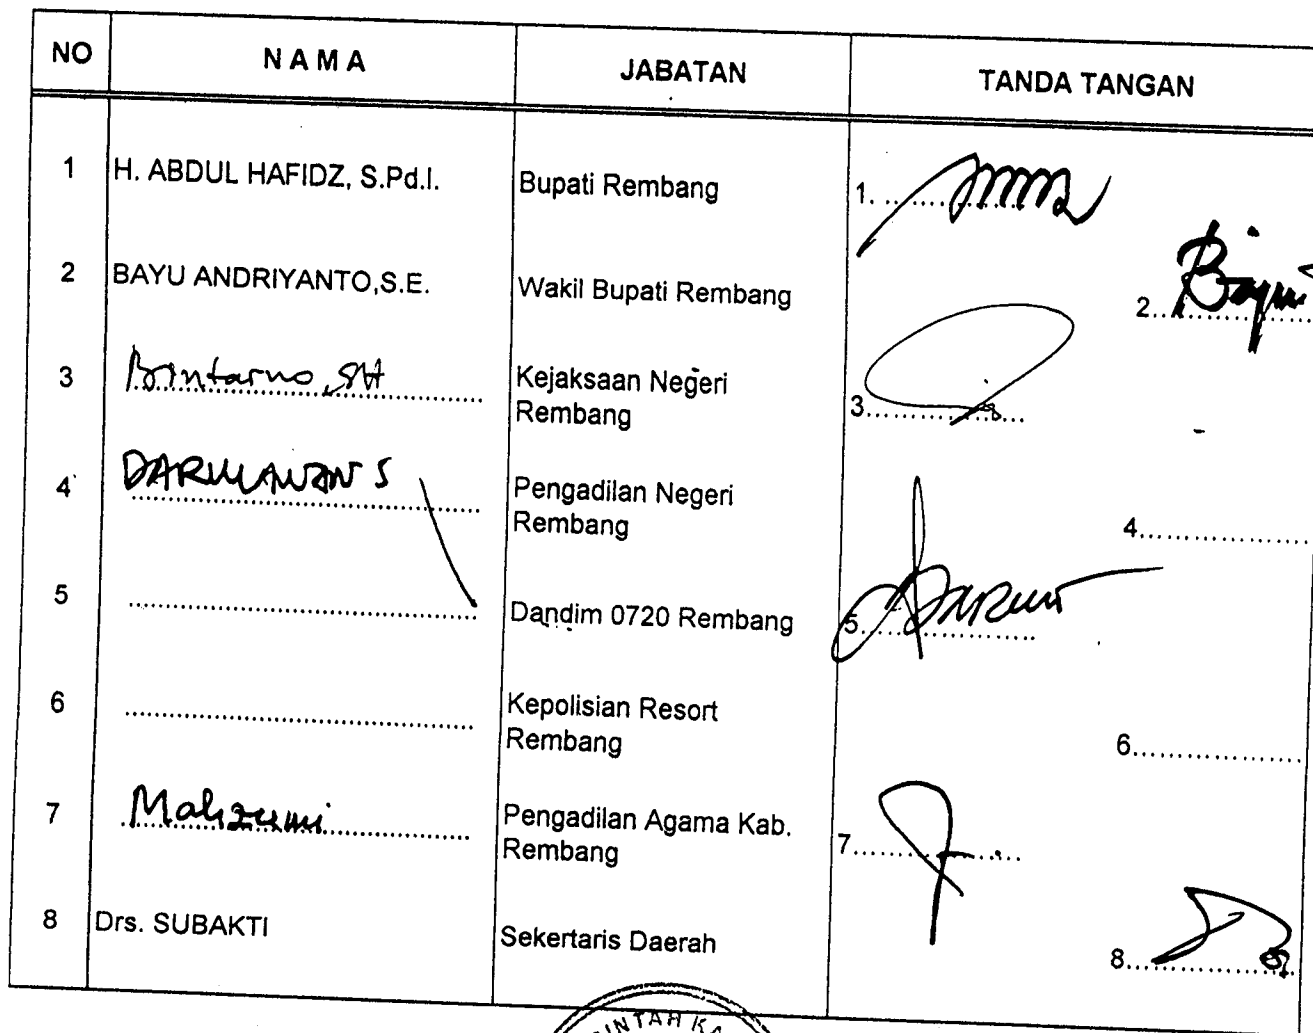 NO N A M A JABATAN TANDA TANGAN
1 H. ABDUL HAFIDZ, S.Pd.I. Bupati Rembang 1.
2 BAYU ANDRIYANTO,S.E. Wakil Bupati Rembang 2.
3 Bintarno, SH Kejaksaan Negeri
Rembang 3.
4 DARMAWAN S Pengadilan Negeri
Rembang 4.
5 Dandim 0720 Rembang 5.
6 Kepolisian Resort
Rembang 6.
7 Mahzumi Pengadilan Agama Kab.
Rembang 7.
8 Drs. SUBAKTI Sekertaris Daerah 8.